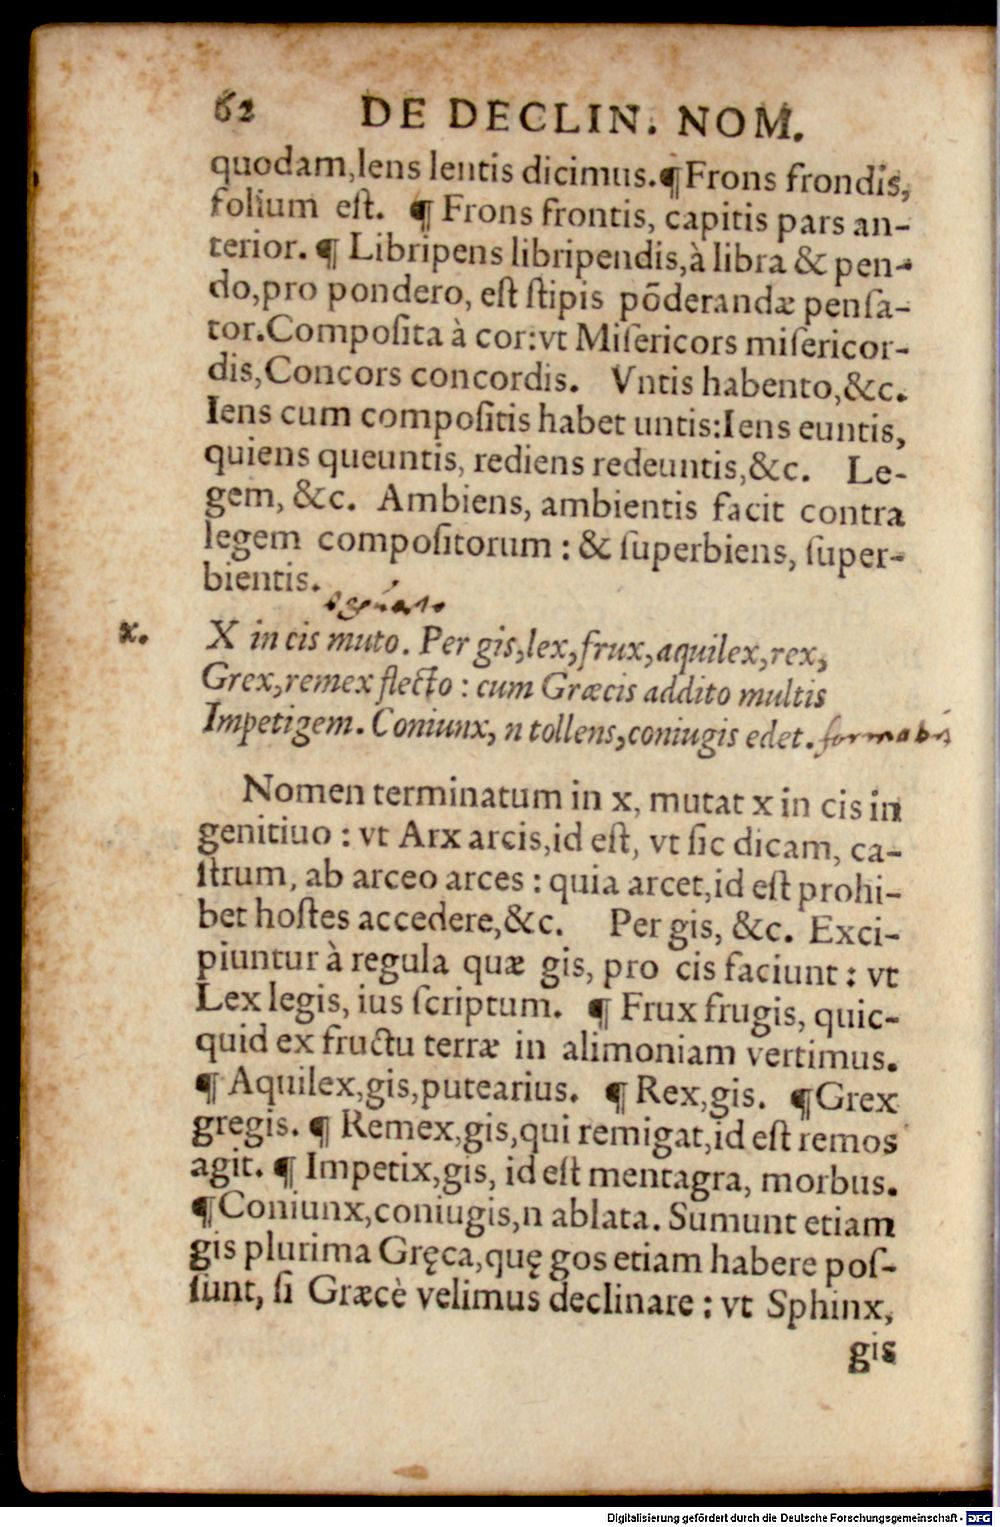 62 DE DECLIN. NOM.
quodam,lens lentis dicimus.¶Frons frondis,
folium eſt. ¶ Frons frontis, capitis pars an-
terior.¶ Libripens libripendis,à libra & pen-
do,pro pondero, eſt ſtipis põderandæ penſa-
tor.Compoſita à cor:vt Miſericors miſericor-
dis,Concors concordis. Vntis habento,&c.
Iens cum compoſitis habet untis:Iens euntis,
quiens queuntis, rediens redeuntis,&c. Le-
gem, &c. Ambiens, ambientis facit contra
legem compoſitorum : & ſuperbiens, ſuper-
bientis.
x. X in cis muto. Per gis,lex,frux,aquilex,rex,
Grex,remex flecto : cum Græcis addito multis
Impetigem. Coniunx, n tollens,coniugis edet. formabis
Nomen terminatum in x, mutat x in cis in
genitiuo : vt Arx arcis,id eſt, vt ſic dicam, ca-
ſtrum, ab arceo arces : quia arcet,id eſt prohi-
bet hoſtes accedere,&c. Per gis, &c. Exci-
piuntur à regula quæ gis, pro cis faciunt : vt
Lex legis, ius ſcriptum. ¶ Frux frugis, quic-
quid ex fructu terræ in alimoniam vertimus.
¶ Aquilex,gis,putearius. ¶ Rex,gis. ¶Grex
gregis.¶ Remex,gis,qui remigat,id eſt remos
agit.¶ Impetix,gis, id eſt mentagra, morbus.
¶Coniunx,coniugis,n ablata. Sumunt etiam
gis plurima Gręca,quę gos etiam habere poſ-
ſunt, ſi Græcè velimus declinare : vt Sphinx,
gis
Digitalisierung gefördert durch die Deutsche Forschungsgemeinschaft - DFG